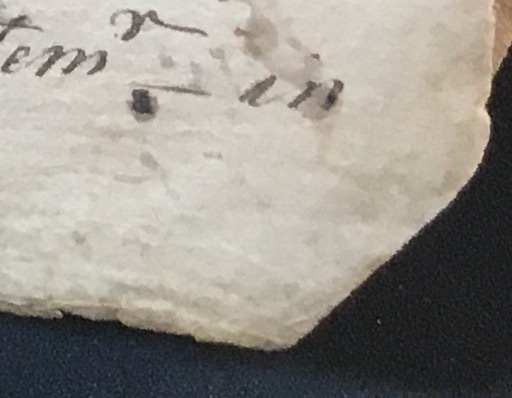 tem^r in